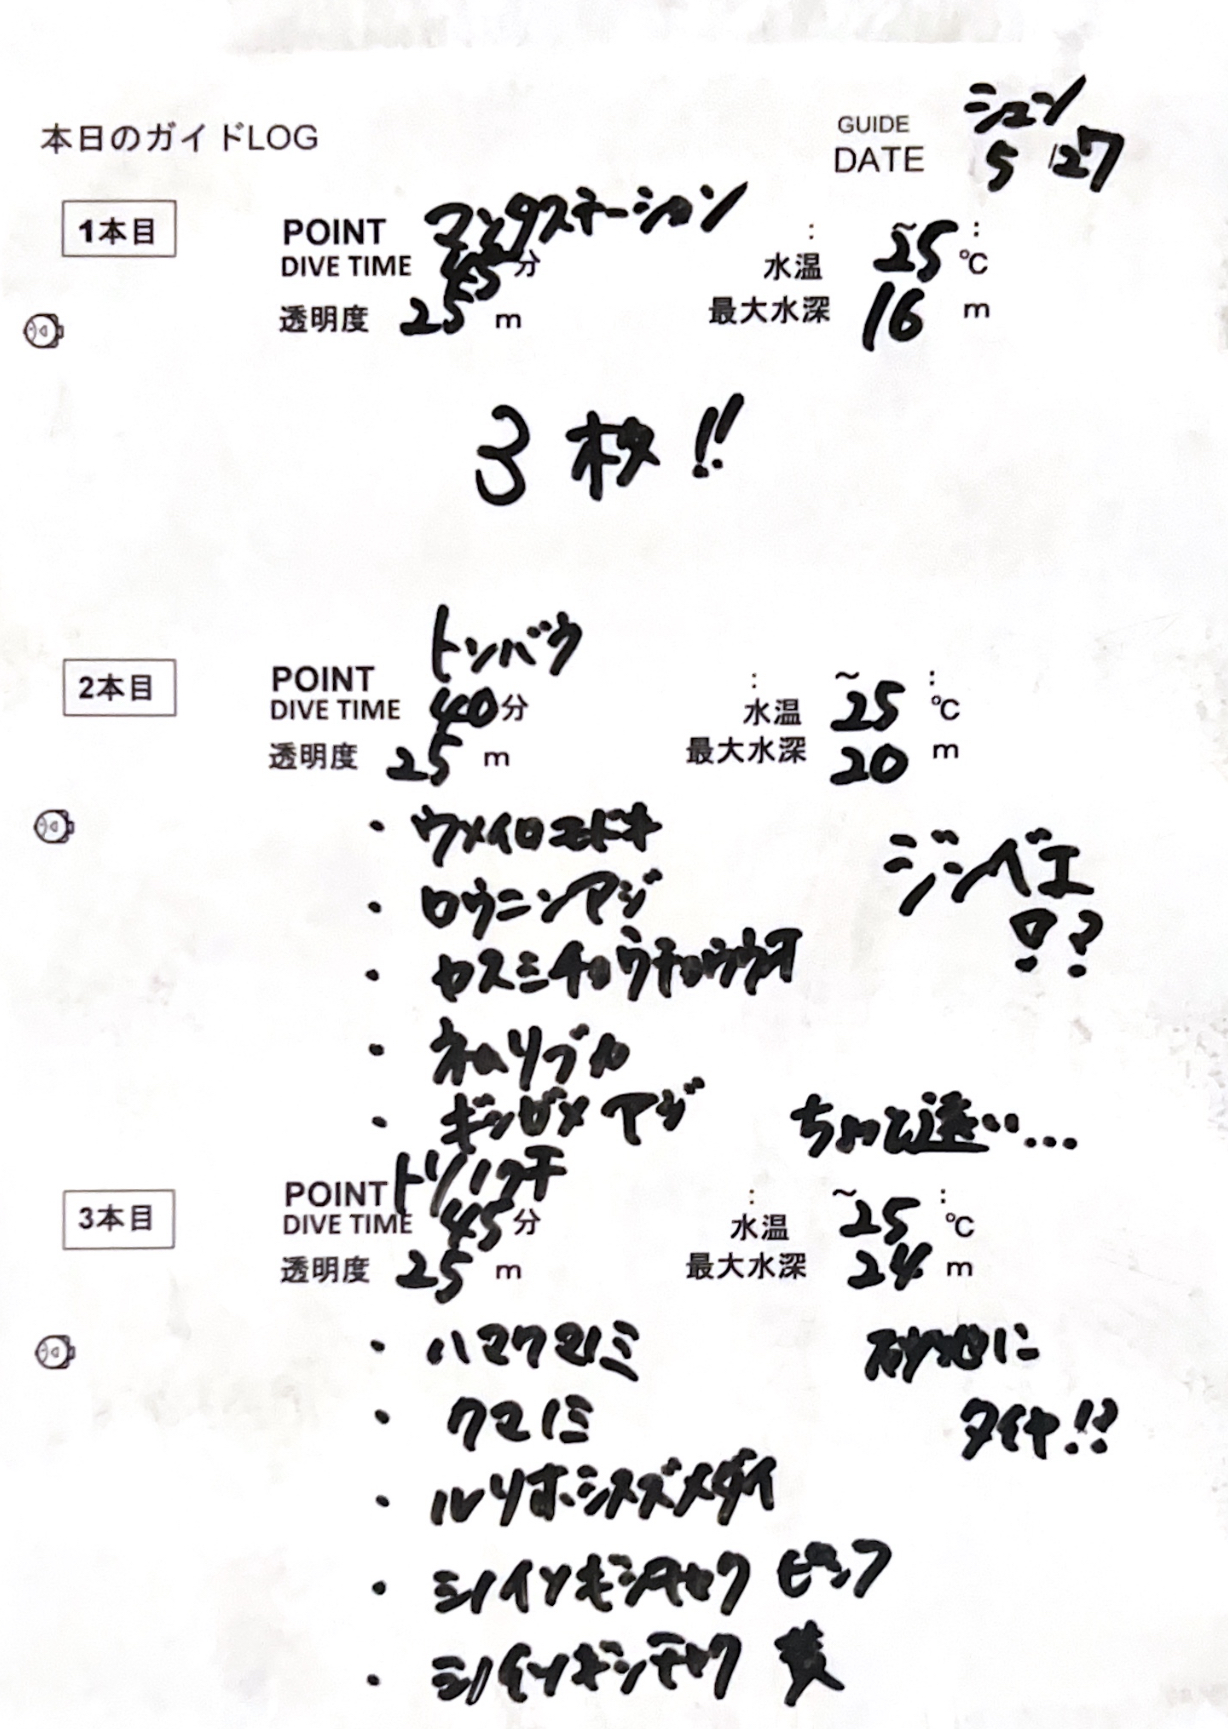 本日のガイドLOG
GUIDE シュン
DATE 5/27
1本目
POINT マンタステーション : ~ :
DIVE TIME 45分 水温 25℃
透明度 25m 最大水深 16m
3枚!!
2本目
POINT トンバウ : ~ :
DIVE TIME 40分 水温 25℃
透明度 25m 最大水深 20m
・ウメイロモドキ
・ロウニンアジ
・カスミチョウチョウウオ
・ネムリブカ
・ギンガメアジ
ジンベエ
!?
ちょっと遠い…
3本目
POINT トリノクチ : ~ :
DIVE TIME 45分 水温 25℃
透明度 25m 最大水深 24m
・ハマクマノミ
・クマノミ
・ルリホシスズメダイ
・シライソギンチャク ピンク
・シライソギンチャク 黄
タイヤ!?